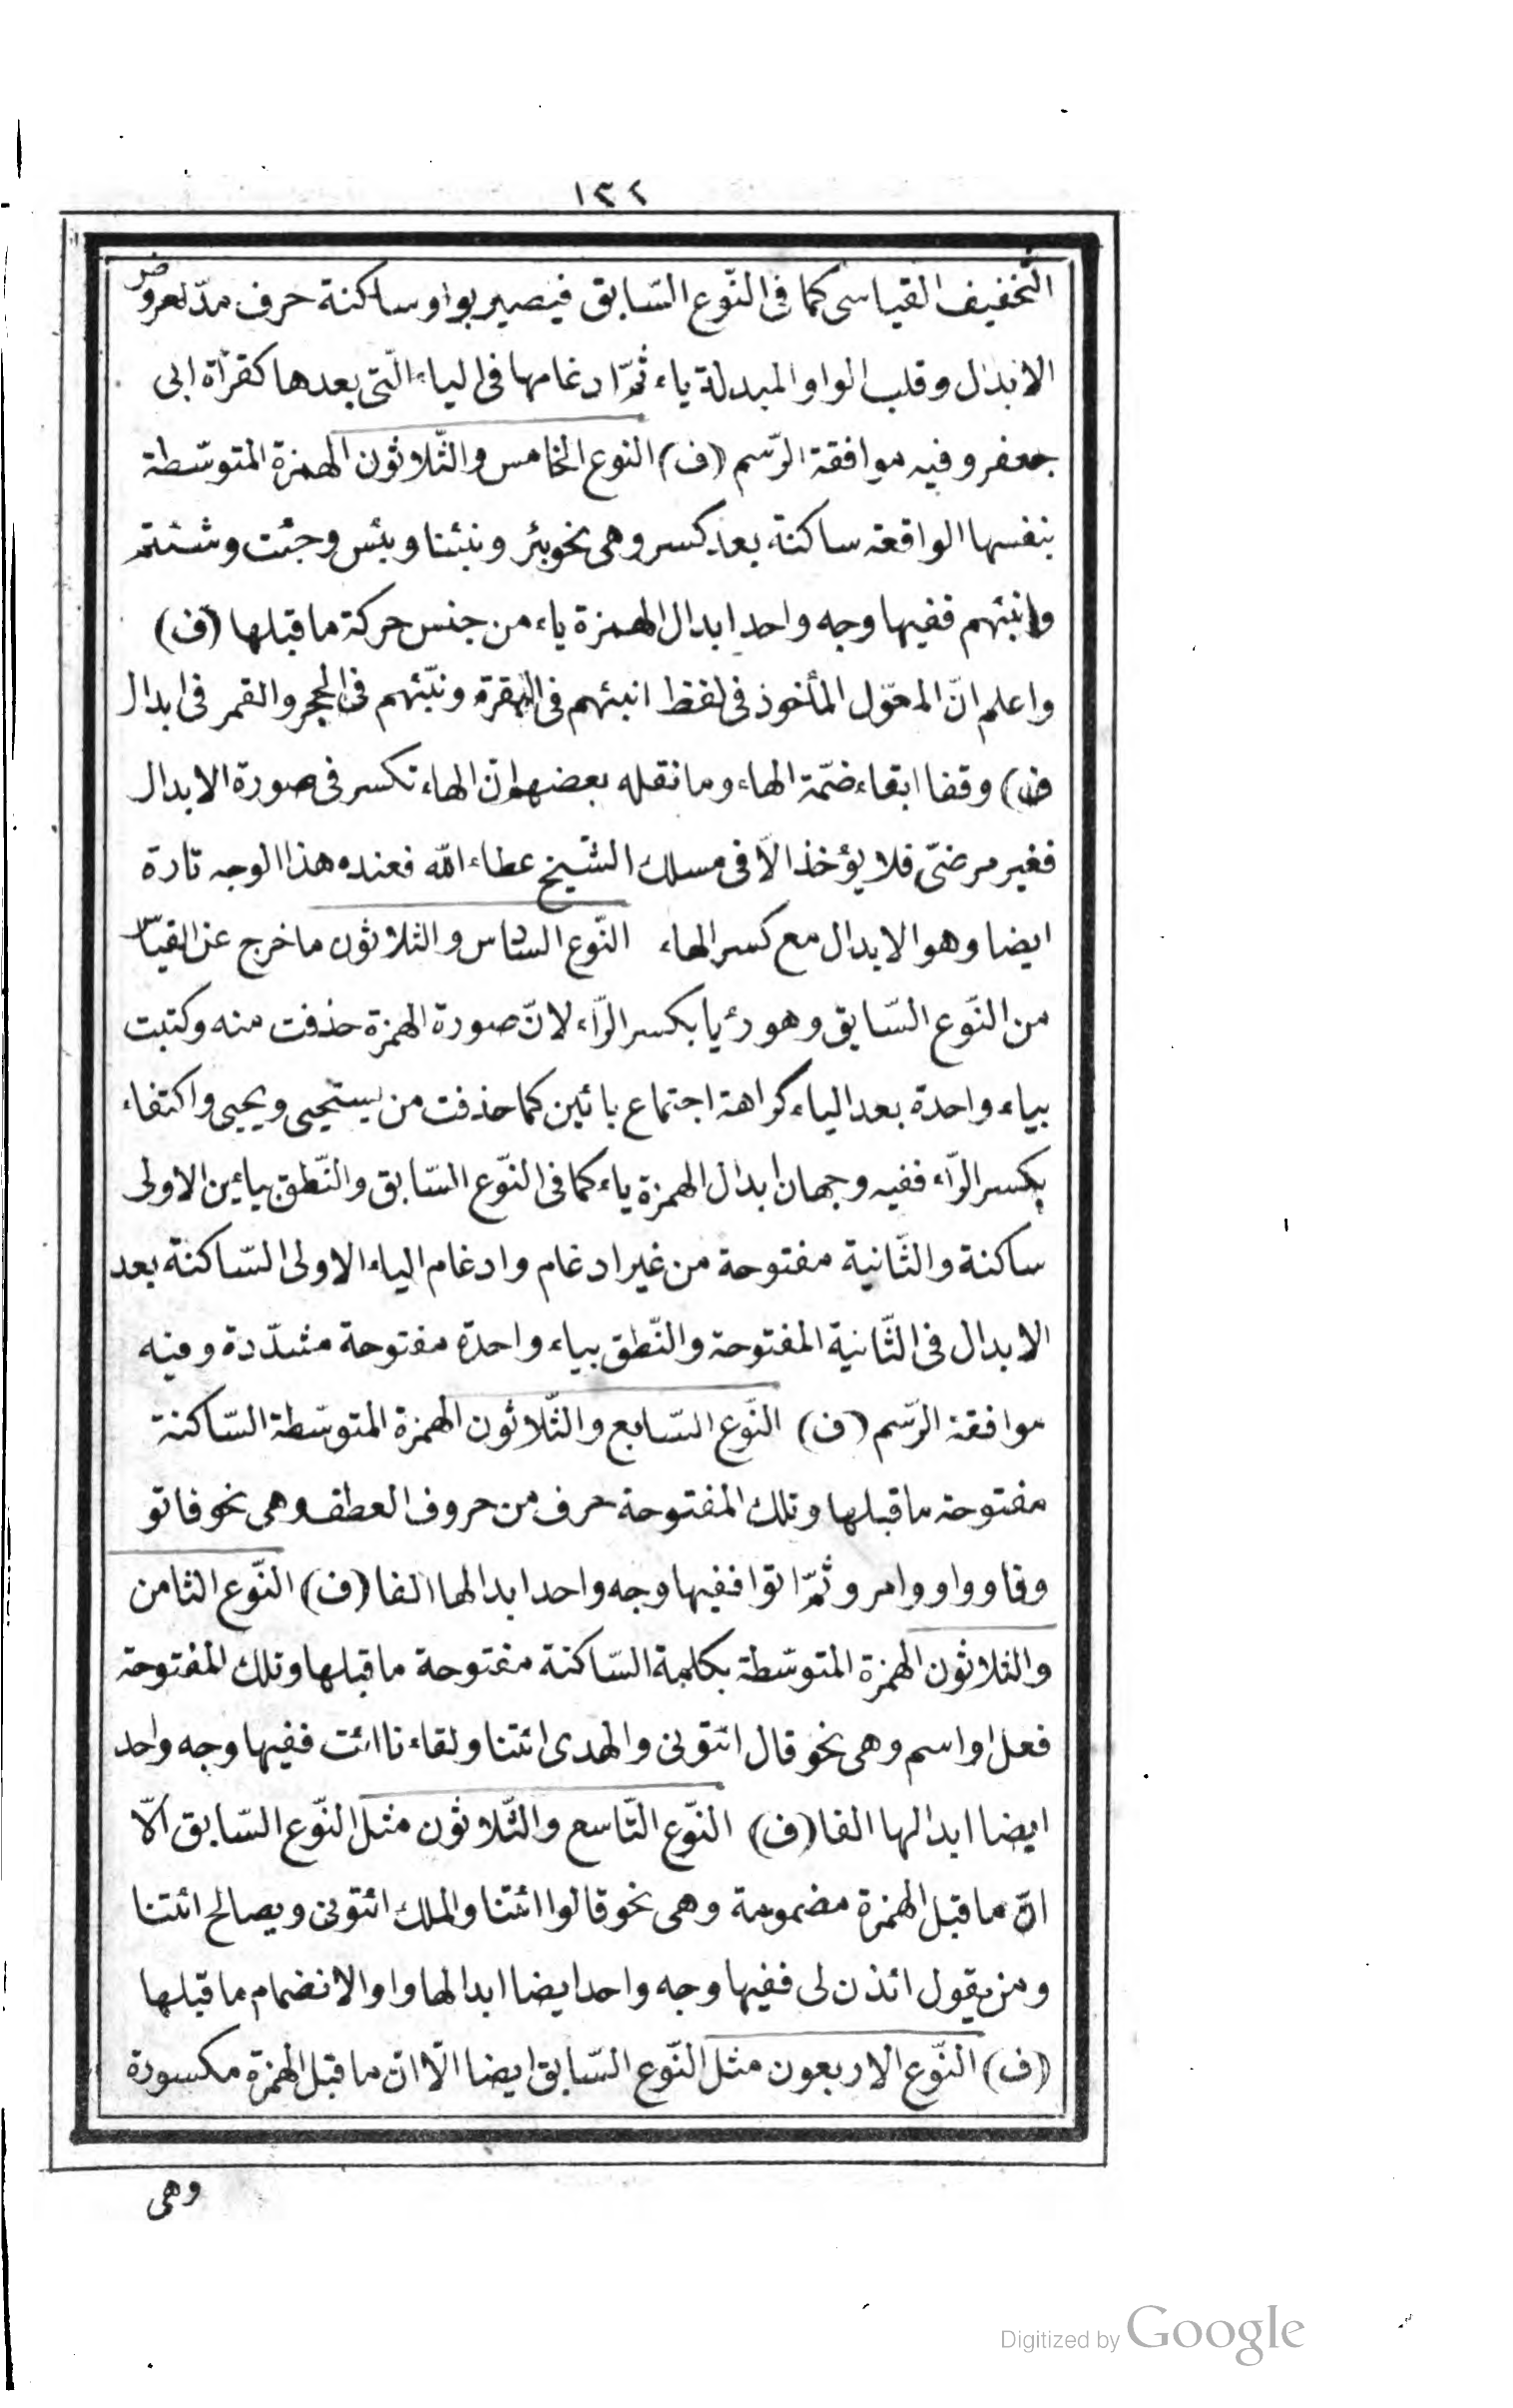 ١٣٢
التّخفيف القياسى كما فى النّوع السّابق فيصير بواو ساكنة حرف مدّ لعروض
الابدال وقلب الواو المبدلة ياء ثمّ ادغامها فى الياء الّتى بعدها كقرأة ابى
جعفر وفيه موافقة الرّسم (ف) النوع الخامس والثّلاثون الهمزة المتوسّطة
بنفسها الواقعة ساكنة بعد كسر وهى نحو بئر ونبئنا وبئس وجئت وشئتم
وانبئهم ففيها وجه واحد ابدال الهمزة ياء من جنس حركة ما قبلها (ف)
واعلم انّ المعوّل المأخوذ فى لفظ انبئهم فى البقرة ونبّئهم فى الحجر والقمر فى ابدال
(ف) وقفا ابقاء ضمّة الهاء وما نقله بعضهم انّ الهاء تكسر فى صورة الابدال
فغير مرضىّ فلا يؤخذ الّا فى مسلك الشّيخ عطاء اللّه فعنده هذا الوجه تارة
ايضا وهو الابدال مع كسر الهاء النّوع السّادس والثلاثون ما خرج عن القياس
من النّوع السّابق وهو رءيا بكسر الرّاء لانّ صورة الهمزة حذفت منه وكتبت
بياء واحدة بعد الياء كراهة اجتماع يائين كما حذفت من يستحيى ويحيى واكتفاء
بكسر الرّاء ففيه وجهان ابدال الهمزة ياء كما فى النّوع السّابق والنّطق بيائين الاولى
ساكنة والثّانية مفتوحة من غير ادغام وادغام الياء الاولى السّاكنة بعد
الابدال فى الثّانية المفتوحة والنّطق بياء واحدة مفتوحة مشدّدة وفيه
موافقة الرّسم (ف) النّوع السّابع والثّلاثون الهمزة المتوسّطة السّاكنة
مفتوحة ما قبلها وتلك المفتوحة حرف من حروف العطف وهى نحو فاتو
وفاووا ووامر وثمّ ائتوا ففيها وجه واحد ابدالها الفا (ف) النّوع الثامن
والثلاثون الهمزة المتوسّطة بكلمة السّاكنة مفتوحة ما قبلها وتلك المفتوحة
فعل او اسم وهى نحو قال ائتونى والهدى ائتنا ولقاءنا ائت ففيها وجه واحد
ايضا ابدالها الفا (ف) النّوع التّاسع والثّلاثون مثل النّوع السّابق الّا
انّ ما قبل الهمزة مضمومة وهى نحو قالوا ائتنا والملك ائتونى ويصالح ائتنا
ومن يقول ائذن لى ففيها وجه واحد ايضا ابدالها واوا لانضمام ما قبلها
(ف) النّوع الاربعون مثل النّوع السّابق ايضا الّا انّ ما قبل الهمزة مكسورة
وهى
Digitized by Google